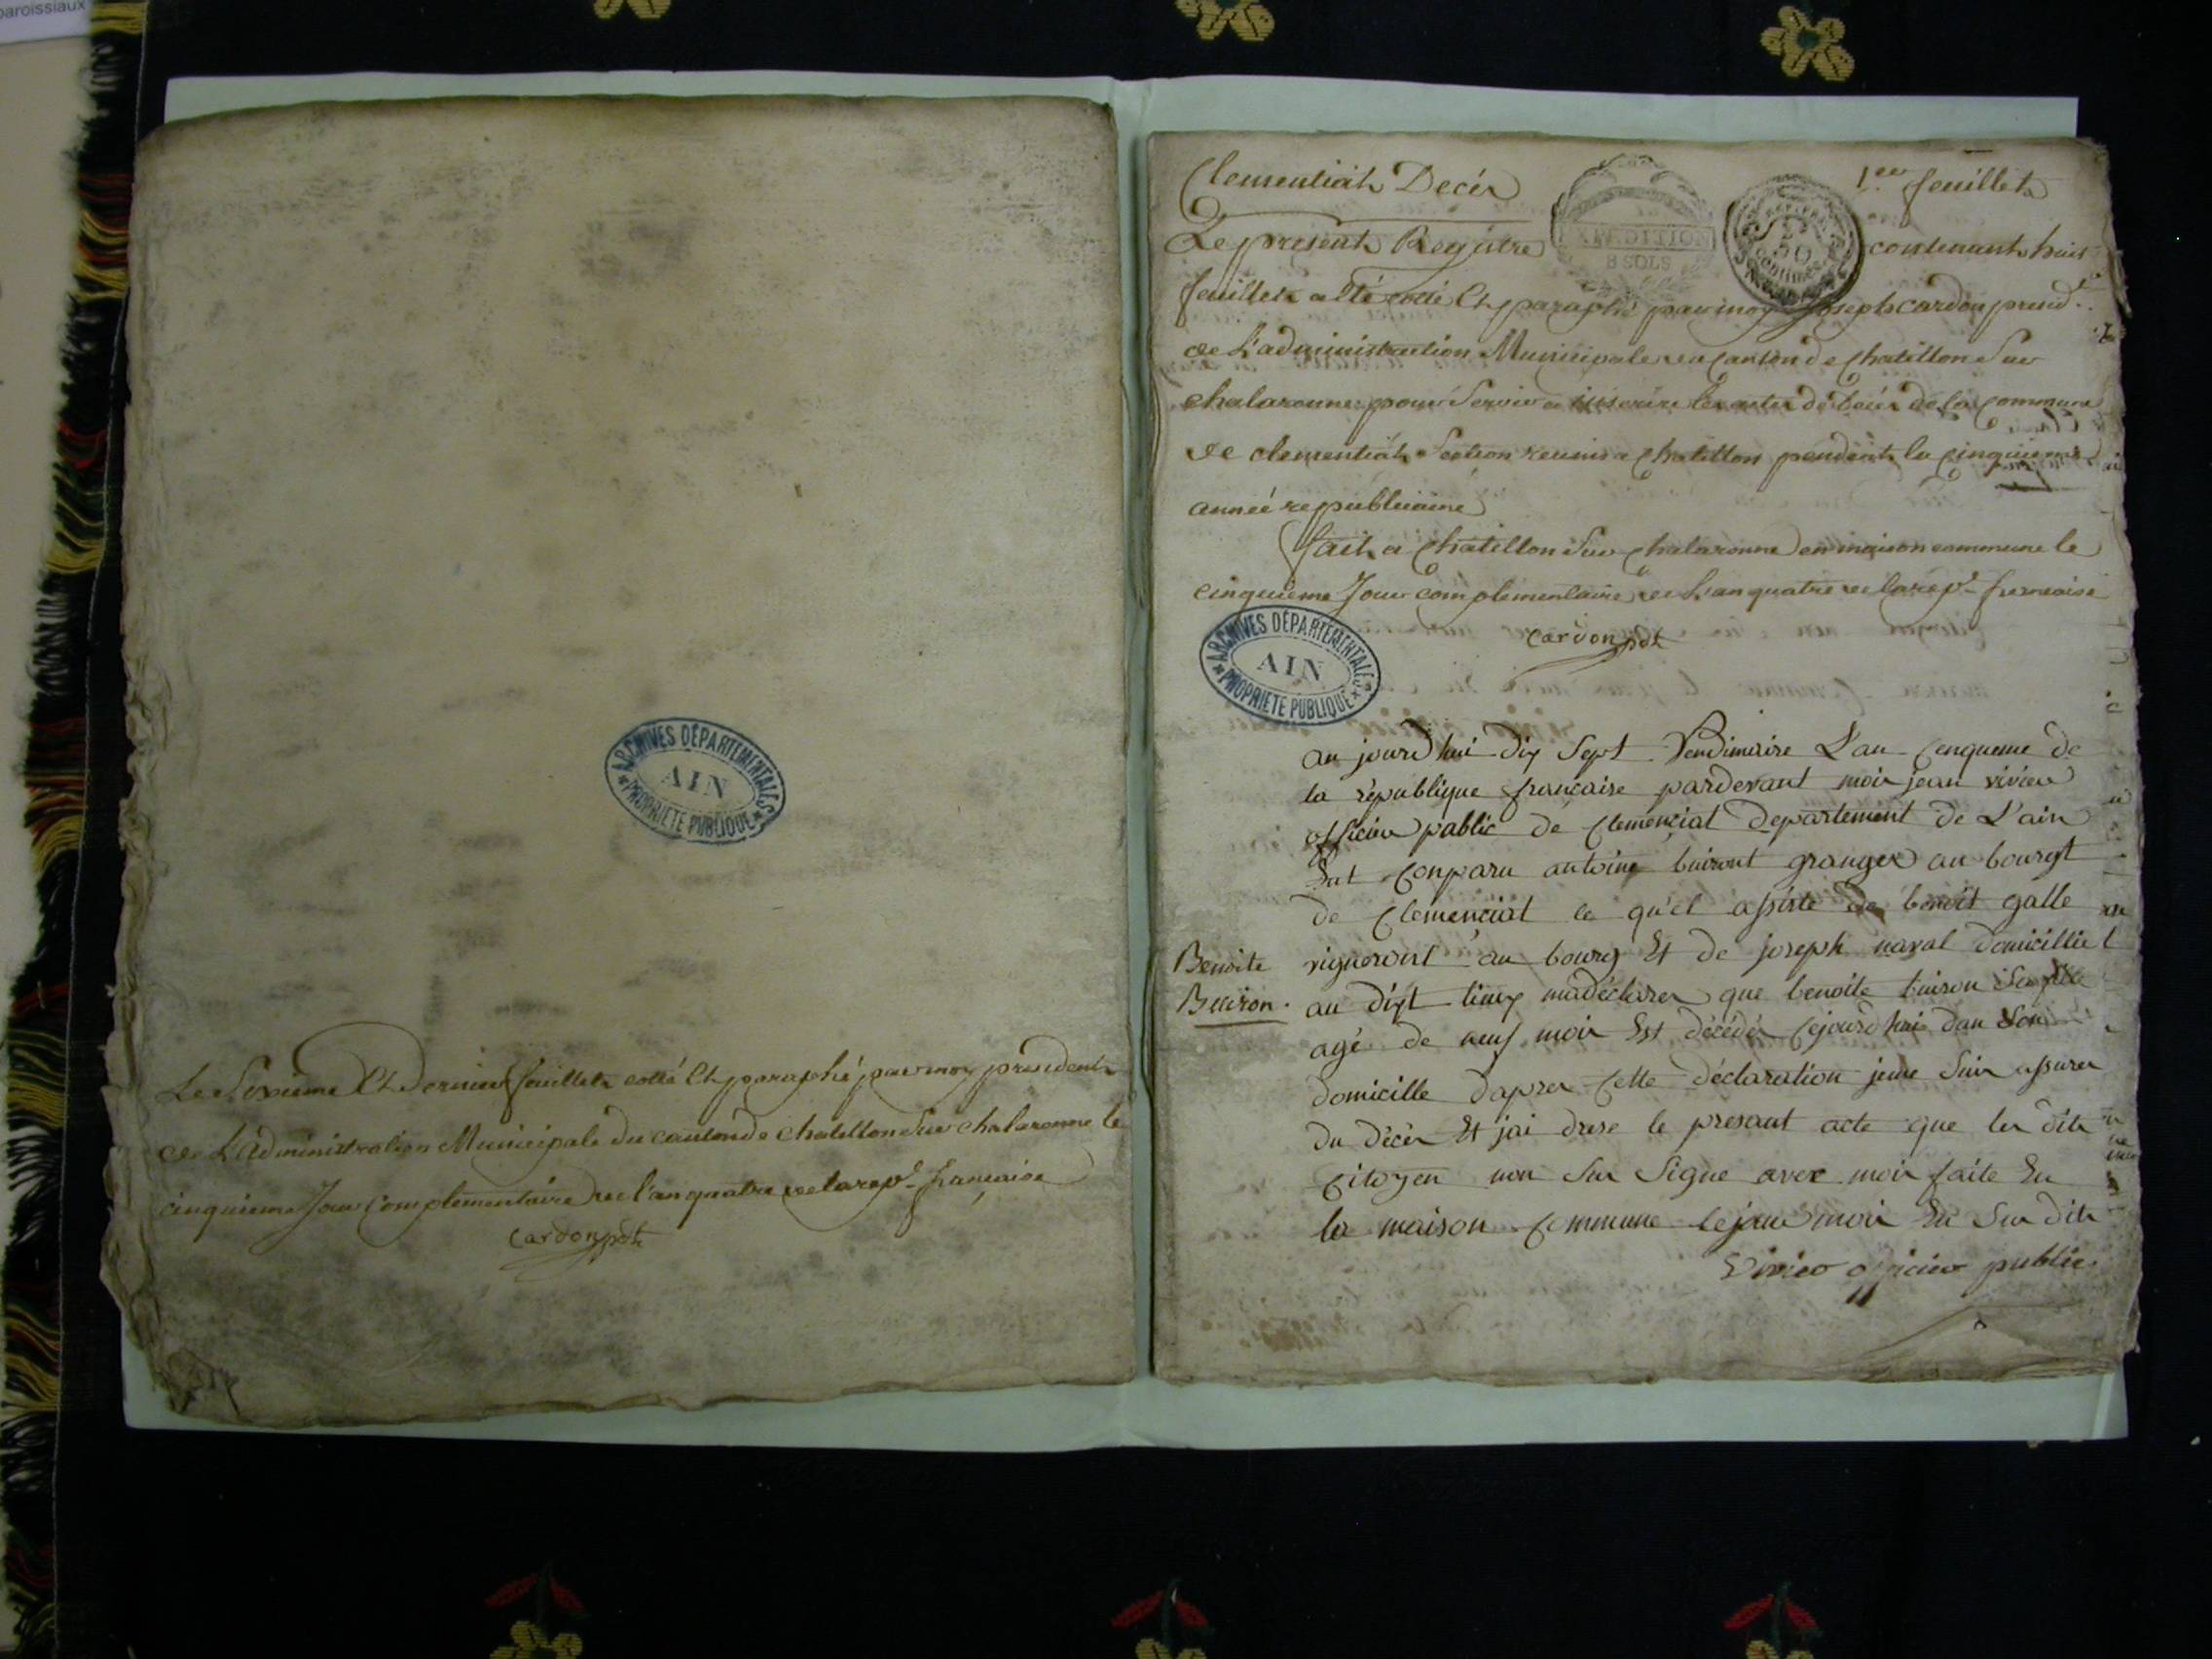 paroissiaux
ARCHIVES DÉPARTEMENTALES
AIN
PROPRIÉTÉ PUBLIQUE
Le Sixieme Et Dernier feuillet cotté Et paraphé par moy president
de L'administration Municipale du canton de Chatillon Sur Chalaronne le
cinquieme Jour Complementaire de l'an quatre de la rep.e française
Cardon pdt
Clementiat Decès
1.er feuillet
EXPEDITION
8 SOLS
REP. FRA.
50
Centimes
Le present Registre contenant huit
feuillets a Eté cotté Et paraphé par moy Joseph Cardon presid.t
de L'administration Municipale du Canton de Chatillon Sur
Chalaronne pour Servir a inscrire les actes de deces de la Commune
de Clementiat Section reunie a Chatillon pendant la Cinquieme
année republicaine
fait a Chatillon Sur Chalaronne en maison commune le
cinquieme Jour Complementaire de L'an quatre de la rep.e francaise
Cardon pdt
ARCHIVES DÉPARTEMENTALES
AIN
PROPRIÉTÉ PUBLIQUE
au jourd hui dix Sept Vendimiaire L'an Cenqueme de
la republique francaise pardevant moi jean vivier
officier public de Clemençiat Departement de L'ain
Est Conparu antoine buiront granger au bourgt
de Clemençiat le qu'el assiste de benoit galle
Benoite
Buiron.
vigneront au bourg Et de joseph naval domicillie
au dixt lieux ma déclarer que benoite buiron Sa fille
agé de neuf moir Est décédér Cejourd hui dan Son
domicille daprer Cette déclaration jeme Suir assurer
du décèr Et jai drese le presant acte que les dits
Citoyen non Su Signe avec moir faite En
la maison Commune le jour moir En Sur dits
Vivier officier public